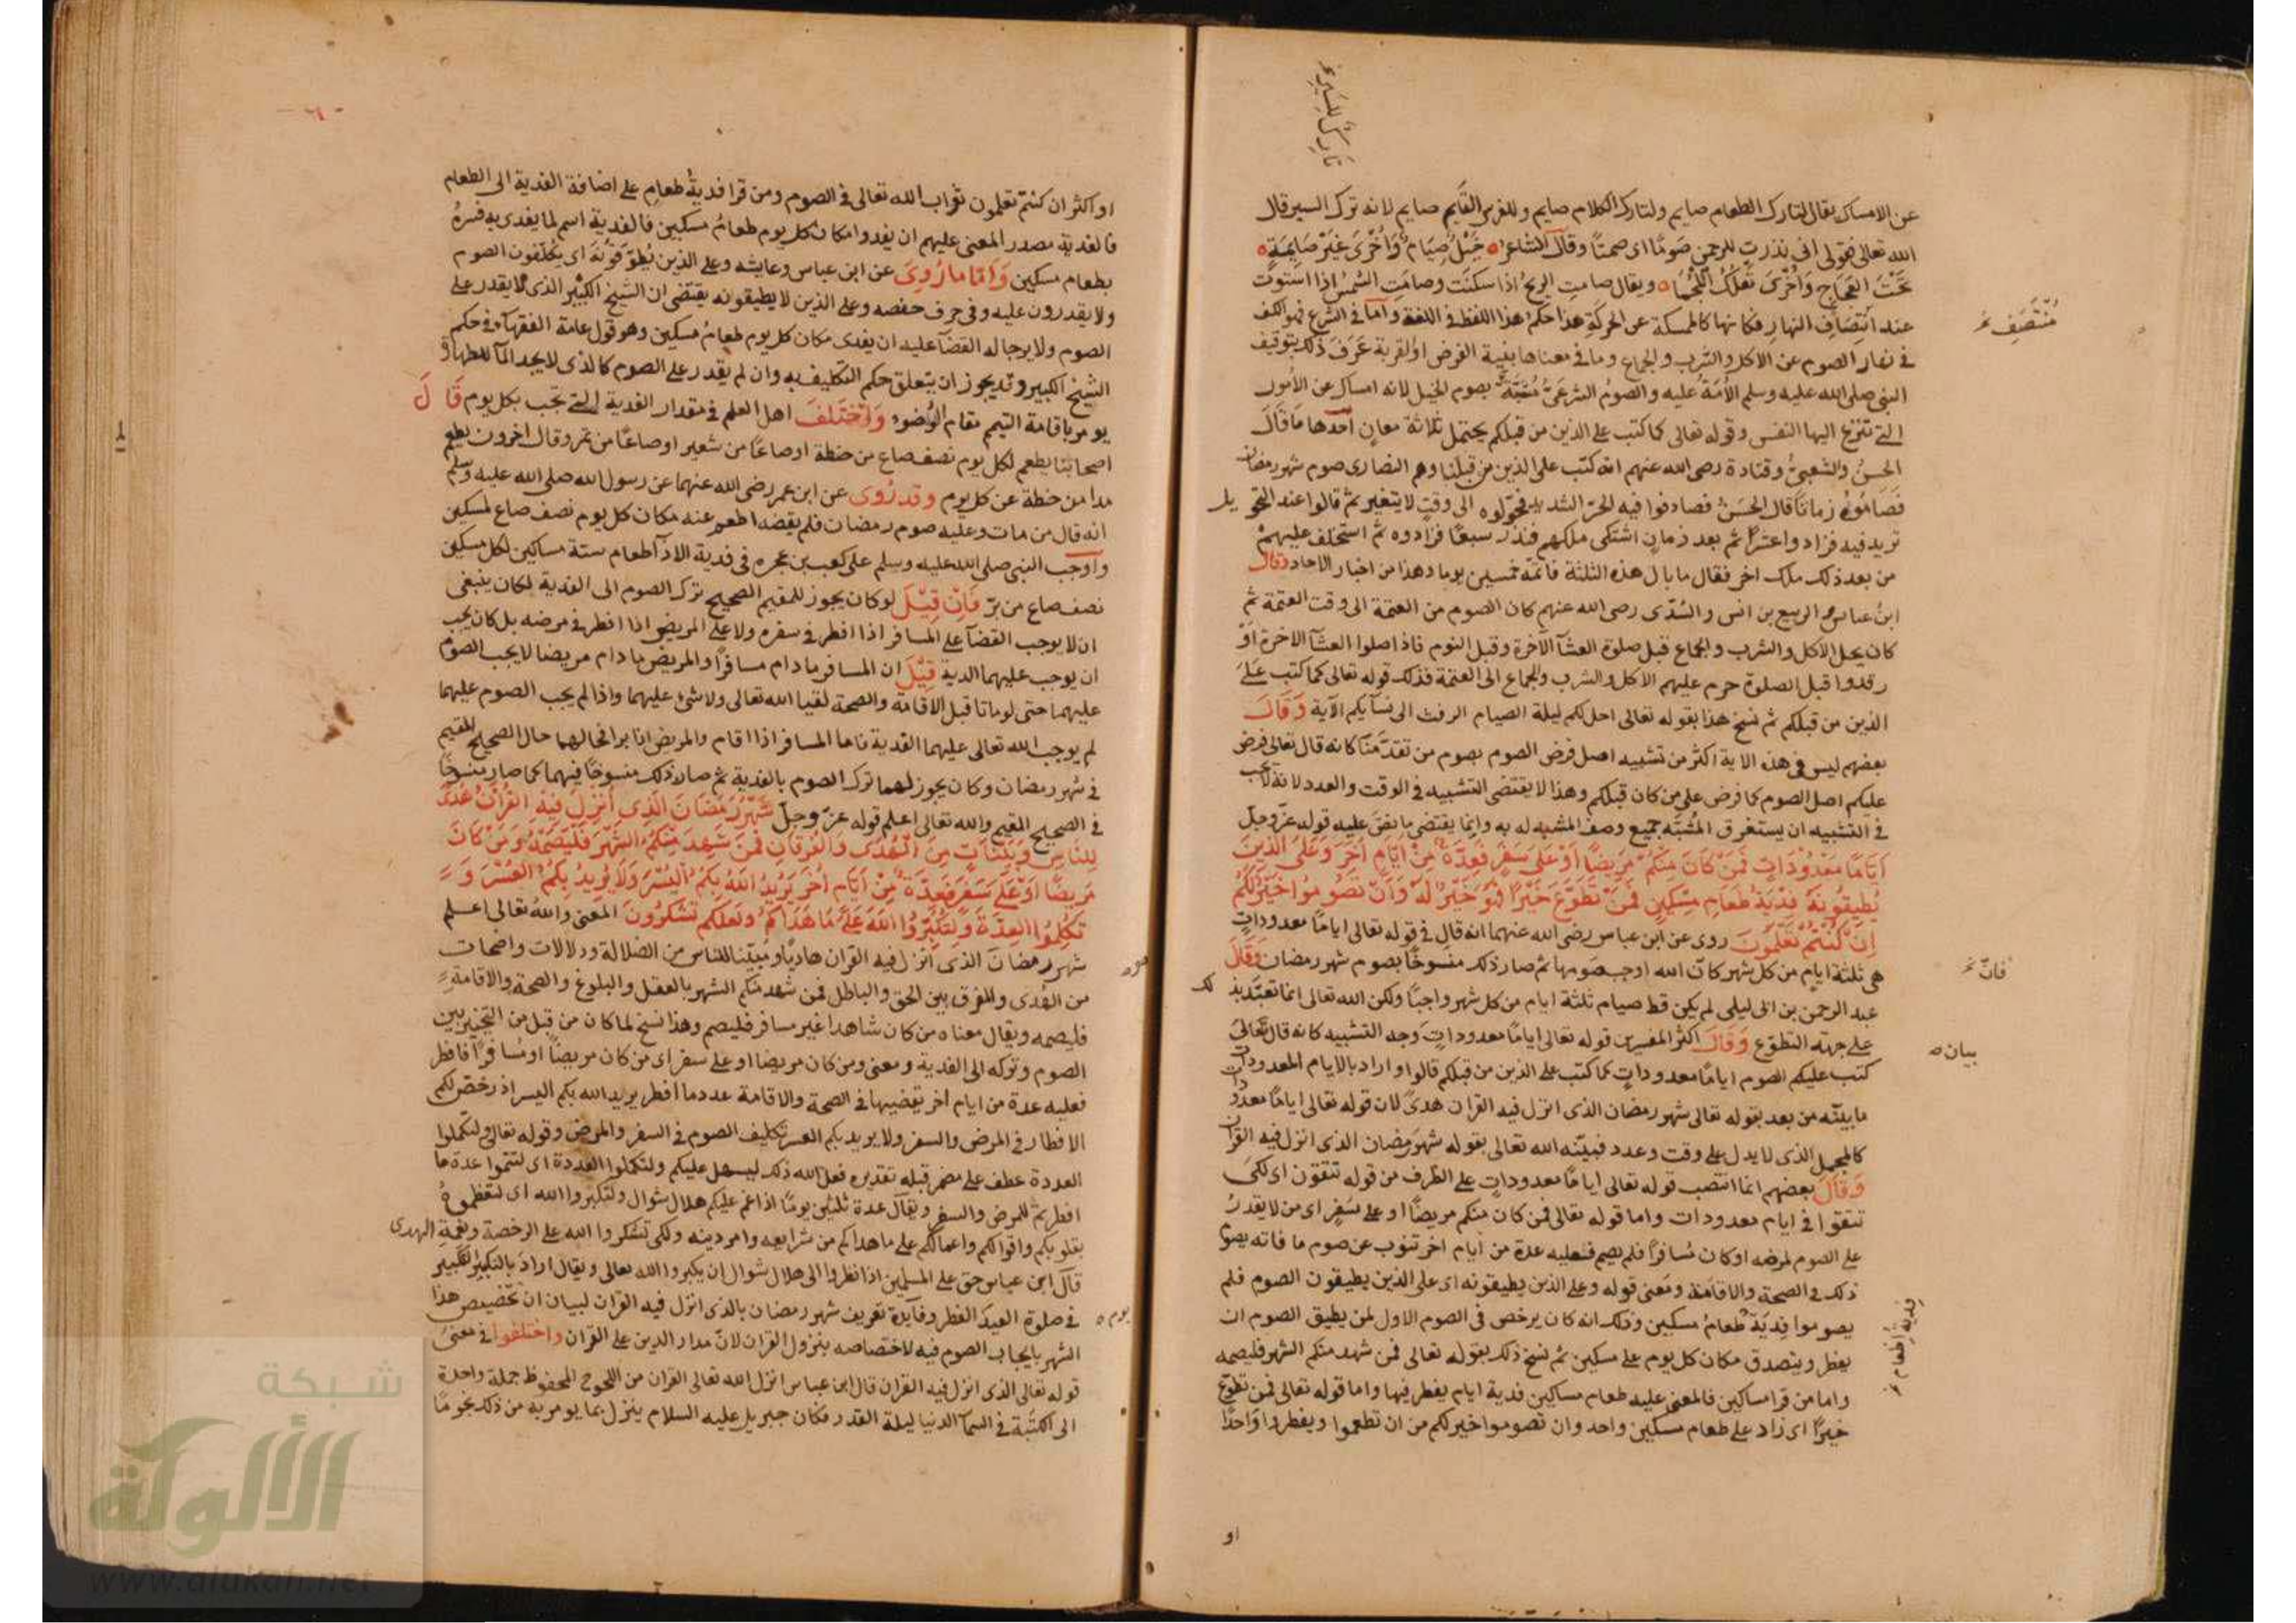 عن الامساك يقال لتارك الطعام صايم ولتارك الكلام صايم وللفرس القايم صايم لانه ترك السير قال
الله تعالى فقولى انى نذرت للرحمن صوما اى صمتا وقال الشاعر خيل صيام واخرى غير صايمة
تحت العجاج واخرى تعلك اللجما ويقال صامت الريح اذا سكنت وصامت الشمس اذا استوت
عند انتصاف النهار فكانها كالممسكة عن الحركة هذا حكم هذا اللفظ فى اللغة واما فى الشرع فهو الكف
فى نهار الصوم عن الاكل والشرب والجماع وما فى معناها بنية الفرض او القربة عرف ذلك بتوقيف
النبى صلى الله عليه وسلم الامة عليه والصوم الشرعى مشبه بصوم الخيل لانه امساك عن الامور
التى تنزع اليها النفس وقوله تعالى كما كتب على الذين من قبلكم يحتمل ثلاثة معان احدها ما قال
الحسن والشعبى وقتادة رضى الله عنهم انه كتب على الذين من قبلنا وهم النصارى صوم شهر رمضان
فصاموه زمانا قال الحسن فصادفوا فيه الحر الشديد فحولوه الى وقت لا يتغير ثم قالوا عند التحويل
نزيد فيه فزادوا عشرا ثم بعد زمان اشتكى ملكهم فنذر سبعا فزادوه ثم استخلف عليهم
من بعد ذلك ملك اخر فقال ما بال هذه الثلثة فاتمه خمسين يوما وهذا من اخبار الاحاد وقال
ابن عباس والربيع بن انس والسدى رضى الله عنهم كان الصوم من العتمة الى وقت العتمة ثم
كان يحل الاكل والشرب والجماع قبل صلوة العشآ الآخرة وقبل النوم فاذا صلوا العشآ الاخرة او
رقدوا قبل الصلوة حرم عليهم الاكل والشرب والجماع الى العتمة فذلك قوله تعالى كما كتب على
الذين من قبلكم ثم نسخ هذا بقوله تعالى احل لكم ليلة الصيام الرفث الى نسآيكم الآية وقال
بعضهم ليس فى هذه الاية اكثر من تشبيه اصل فرض الصوم بصوم من تقدمنا كانه قال تعالى فرض
عليكم اصل الصوم كما فرض على من كان قبلكم وهذا لا يقتضى التشبيه فى الوقت والعدد لانه لا يجب
فى التشبيه ان يستغرق المشبه جميع وصف المشبه له به وانما يقتضى ما نص عليه قوله عز وجل
اياما معدودات فمن كان منكم مريضا او على سفر فعدة من ايام اخر وعلى الذين
يطيقونه فدية طعام مسكين فمن تطوع خيرا فهو خير له وان تصوموا خير لكم
ان كنتم تعلمون روى عن ابن عباس رضى الله عنهما انه قال فى قوله تعالى اياما معدودات
هى ثلثة ايام من كل شهر كان الله اوجب صومها ثم صار ذلك منسوخا بصوم شهر رمضان وقال
عبد الرحمن بن ابى ليلى لم يكن قط صيام ثلثة ايام من كل شهر واجبا ولكن الله تعالى انما تعبد بذلك
على جهته التطوع وقال اكثر المفسرين قوله تعالى اياما معدودات وجه التشبيه كانه قال تعالى
كتب عليكم الصوم اياما معدودات كما كتب على الذين من قبلكم قالوا واراد بالايام المعدودات
ما بينه من بعد بقوله تعالى شهر رمضان الذى انزل فيه القران هدى لان قوله تعالى اياما معدودات
كالمجمل الذى لا يدل على وقت وعدد فبينه الله تعالى بقوله شهر رمضان الذى انزل فيه القران
وقال بعضهم انما انتصب قوله تعالى اياما معدودات على الظرف من قوله تتقون اى لكى
تتقوا فى ايام معدودات واما قوله تعالى فمن كان منكم مريضا او على سفر اى من لا يقدر
على الصوم لمرضه او كان مسافرا فلم يصم فعليه عدة من ايام اخر تنوب عن صوم ما فاته يصوم
ذلك فى الصحة والاقامة ومعنى قوله وعلى الذين يطيقونه اى على الذين يطيقون الصوم فلم
يصوموا فدية طعام مسكين وذلك انه كان يرخص فى الصوم الاول لمن يطيق الصوم ان
يفطر ويتصدق مكان كل يوم على مسكين ثم نسخ ذلك بقوله تعالى فمن شهد منكم الشهر فليصمه
واما من قرا مساكين فالمعنى عليه طعام مساكين فدية ايام يفطر فيها واما قوله تعالى فمن تطوع
خيرا اى زاد على طعام مسكين واحد وان تصوموا خير لكم من ان تطعموا ويفطروا واحدا
او
منتصف
فان
بيان
او اكثر ان كنتم تعلمون ثواب الله تعالى فى الصوم ومن قرا فدية طعام على اضافة الفدية الى الطعام
فالفدية مصدر المعنى عليهم ان يفدوا مكان كل يوم طعام مسكين فالفدية اسم لما يفدى به فسره
بطعام مسكين واما ما روى عن ابن عباس وعايشه وعلى الذين يطوقونه اى يكلفون الصوم
ولا يقدرون عليه وفى حرف حفصه وعلى الذين لا يطيقونه يقتضى ان الشيخ الكبير الذى لا يقدر على
الصوم ولا يرجا له القضآ عليه ان يفدى مكان كل يوم طعام مسكين وهو قول عامة الفقهآ فى حكم
الشيخ الكبير وقد يجوز ان يتعلق حكم التكليف به وان لم يقدر على الصوم كالذى لا يجد المآ للطهارة
يومر باقامة التيمم مقام الوضوء واختلف اهل العلم فى مقدار الفدية التى تجب بكل يوم قال
اصحابنا يطعم لكل يوم نصف صاع من حنطة او صاعا من شعير او صاعا من تمر وقال اخرون يطعم
مدا من حنطة عن كل يوم وقد روى عن ابن عمر رضى الله عنهما عن رسول الله صلى الله عليه وسلم
انه قال من مات وعليه صوم رمضان فلم يقضه اطعم عنه مكان كل يوم نصف صاع لمسكين
واوجب النبى صلى الله عليه وسلم على كعب بن عجره فى فدية الاذآ اطعام ستة مساكين لكل مسكين
نصف صاع من بر فان قيل لو كان يجوز للمقيم الصحيح ترك الصوم الى الفدية لكان ينبغى
ان لا يوجب القضآ على المسافر اذا افطر فى سفره ولا على المريض اذا افطر فى مرضه بل كان يجب
ان يوجب عليهما الدية قيل ان المسافر ما دام مسافرا والمريض ما دام مريضا لا يجب الصوم
عليهما حتى لو ماتا قبل الاقامة والصحة لقيا الله تعالى ولا شئ عليهما واذا لم يجب الصوم عليهما
لم يوجب الله تعالى عليهما الفدية فاما المسافر اذا اقام والمريض اذا برا فحالهما حال الصحيح المقيم
فى شهر رمضان وكان يجوز لهما ترك الصوم بالفدية ثم صار ذلك منسوخا فيهما كما صار منسوخا
فى الصحيح المقيم والله تعالى اعلم قوله عز وجل شهر رمضان الذى انزل فيه القران هدى
للناس وبينات من الهدى والفرقان فمن شهد منكم الشهر فليصمه ومن كان
مريضا او على سفر فعدة من ايام اخر يريد الله بكم اليسر ولا يريد بكم العسر و
لتكملوا العدة ولتكبروا الله على ما هداكم ولعلكم تشكرون المعنى والله تعالى اعلم
شهر رمضان الذى انزل فيه القران هاديا ومبينا للناس من الضلالة ودلالات واضحات
من الهدى والفرق بين الحق والباطل فمن شهد منكم الشهر بالعقل والبلوغ والصحة والاقامة
فليصمه ويقال معناه من كان شاهدا غير مسافر فليصم وهذا نسخ لما كان من قبل من التخيير بين
الصوم وتركه الى الفدية ومعنى ومن كان مريضا او على سفر اى من كان مريضا او مسافرا فافطر
فعليه عدة من ايام اخر يقضيها فى الصحة والاقامة عدد ما افطر يريد الله بكم اليسر اذ رخص لكم
الافطار فى المرض والسفر ولا يريد بكم العسر تكليف الصوم فى السفر والمرض وقوله تعالى ولتكملوا
العدة عطف على مضمر قبله تقديره فعل الله ذلك ليسهل عليكم ولتكملوا العدة اى لتتموا عدة ما
افطرتم للمرض والسفر ويقال عدة ثلثين يوما اذا غم عليكم هلال شوال ولتكبروا الله اى لتعظموه
بقلوبكم واقوالكم واعمالكم على ما هداكم من شرايعه وامر دينه ولكى تشكروا الله على الرخصة ونعمة الهدى
قال ابن عباس حق على المسلمين اذا نظروا الى هلال شوال ان يكبروا الله تعالى ويقال اراد بالتكبير تكبير
فى صلوة العيد الفطر وفايدة تعريف شهر رمضان بالذى انزل فيه القران لبيان ان تخصيص هذا
الشهر بايجاب الصوم فيه لاختصاصه بنزول القران لان مدار الدين على القران واختلفوا فى معنى
قوله تعالى الذى انزل فيه القران قال ابن عباس انزل الله تعالى القران من اللوح المحفوظ جملة واحدة
الى الكتبة فى السمآ الدنيا ليلة القدر فكان جبريل عليه السلام ينزل بما يومر به من ذلك نجوما
يوم
شبكة
الألوكة
www.alukah.net